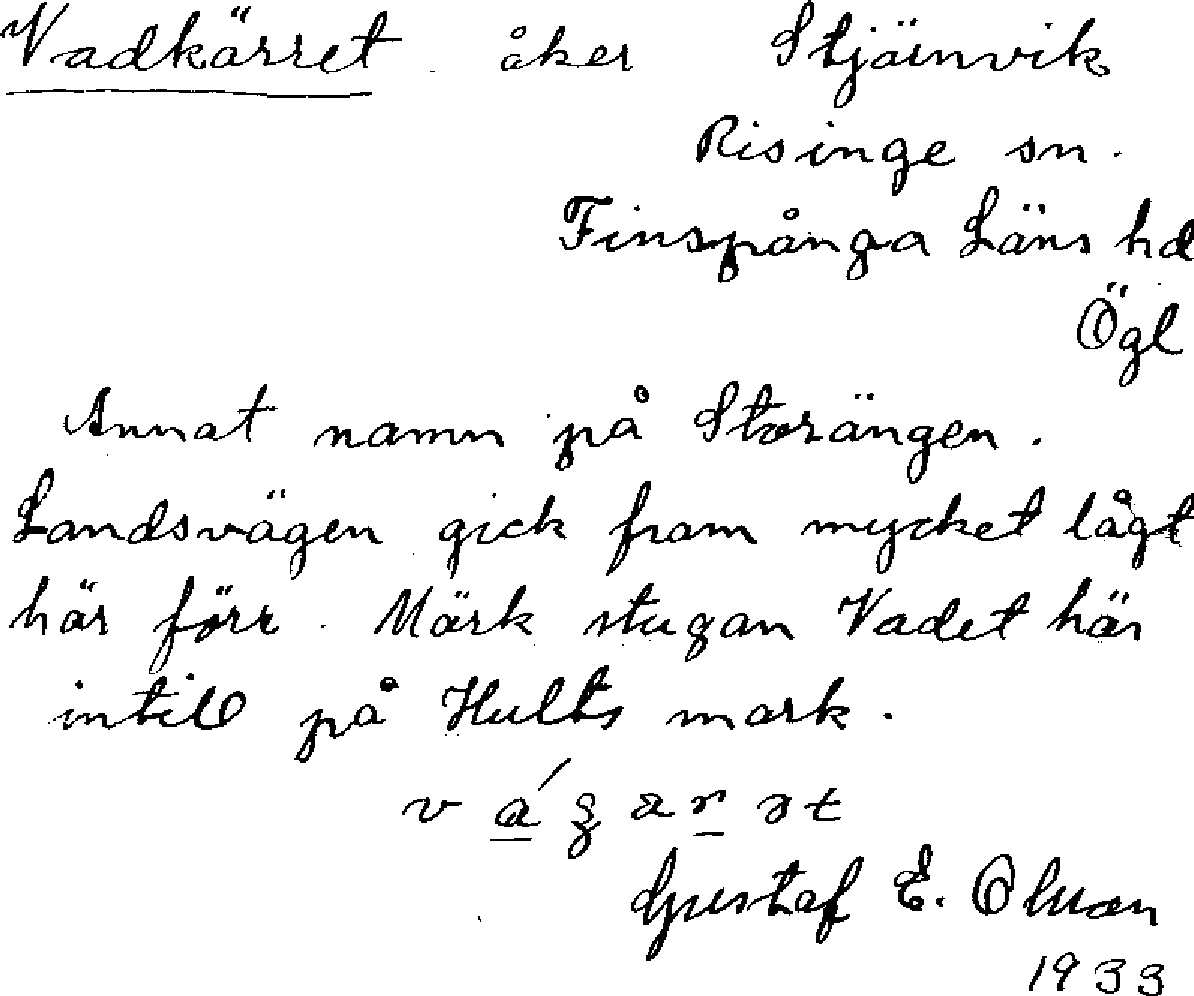 Vadkärret åker Stjärnvik
Risinge sn.
Finspånga Läns hd
Ögl
Annat namn på Storängen.
Landsvägen gick fram mycket lågt
här förr. Märk stugan Vadet här
intill på Hults mark.
Gustaf E. Olsson
1933